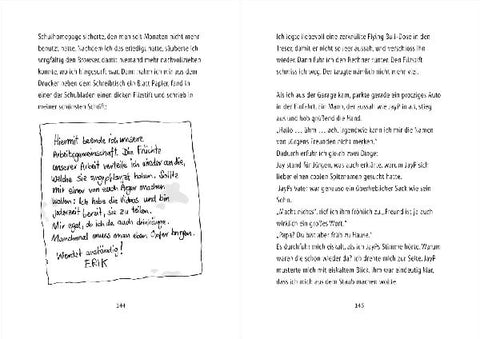 Schulhomepage sicherte, den man seit Monaten nicht mehr
benutzt hatte. Nachdem ich das erledigt hatte, säuberte ich
sorgfältig den Browser, damit niemand mehr nachvollziehen
konnte, wo ich hingesurft war. Dann nahm ich mir aus dem
Drucker neben dem Schreibtisch ein Blatt Papier, fand in
einer der Schubladen einen dicken Filzstift und schrieb in
meiner schönsten Schrift:
Hiermit beende ich unsere
Arbeitsgemeinschaft. Die Früchte
unserer Arbeit verteile ich wieder an die,
welche sie angepflanzt haben. Sollte
mir einer von euch Ärger machen
wollen: Ich habe die Videos und bin
jederzeit bereit, sie zu teilen.
Mir egal, da ich da auch drinhänge.
Manchmal muss man eben Opfer bringen.
Werdet anständig!
ERIK
144
Ich legte liebevoll eine zerknüllte Flying Bull-Dose in den
Tresor, damit er nicht so leer aussah, und verschloss ihn
wieder. Dann fuhr ich den Rechner runter. Den Filzstift
schmiss ich weg. Der taugte nämlich nicht mehr viel.
Als ich aus der Garage kam, parkte gerade ein protziges Auto
in der Einfahrt, ein Mann, der aussah wie JayF in alt, stieg
aus und hob grüßend die Hand.
»Hallo ... ähm ... ach, irgendwie kann ich mir die Namen
von Jürgens Freunden nicht merken.«
Dadurch erfuhr ich gleich zwei Dinge:
Jay stand für Jürgen, was auch erklärte, warum JayF sich
lieber einen coolen Spitznamen gesucht hatte.
JayFs Vater war genauso ein überheblicher Sack wie sein
Sohn.
»Macht nichts«, rief ich ihm fröhlich zu. »Freund ist ja auch
wirklich ein großes Wort.«
»Papa? Du bist aber früh zu Hause.«
Es durchfuhr mich eiskalt, als ich JayFs Stimme hörte. Warum
waren die schon wieder da? Ich drehte mich zur Seite. JayF
musterte mich mit eiskaltem Blick. Ihm war eindeutig klar,
dass ich mich aus dem Staub machen wollte.
145